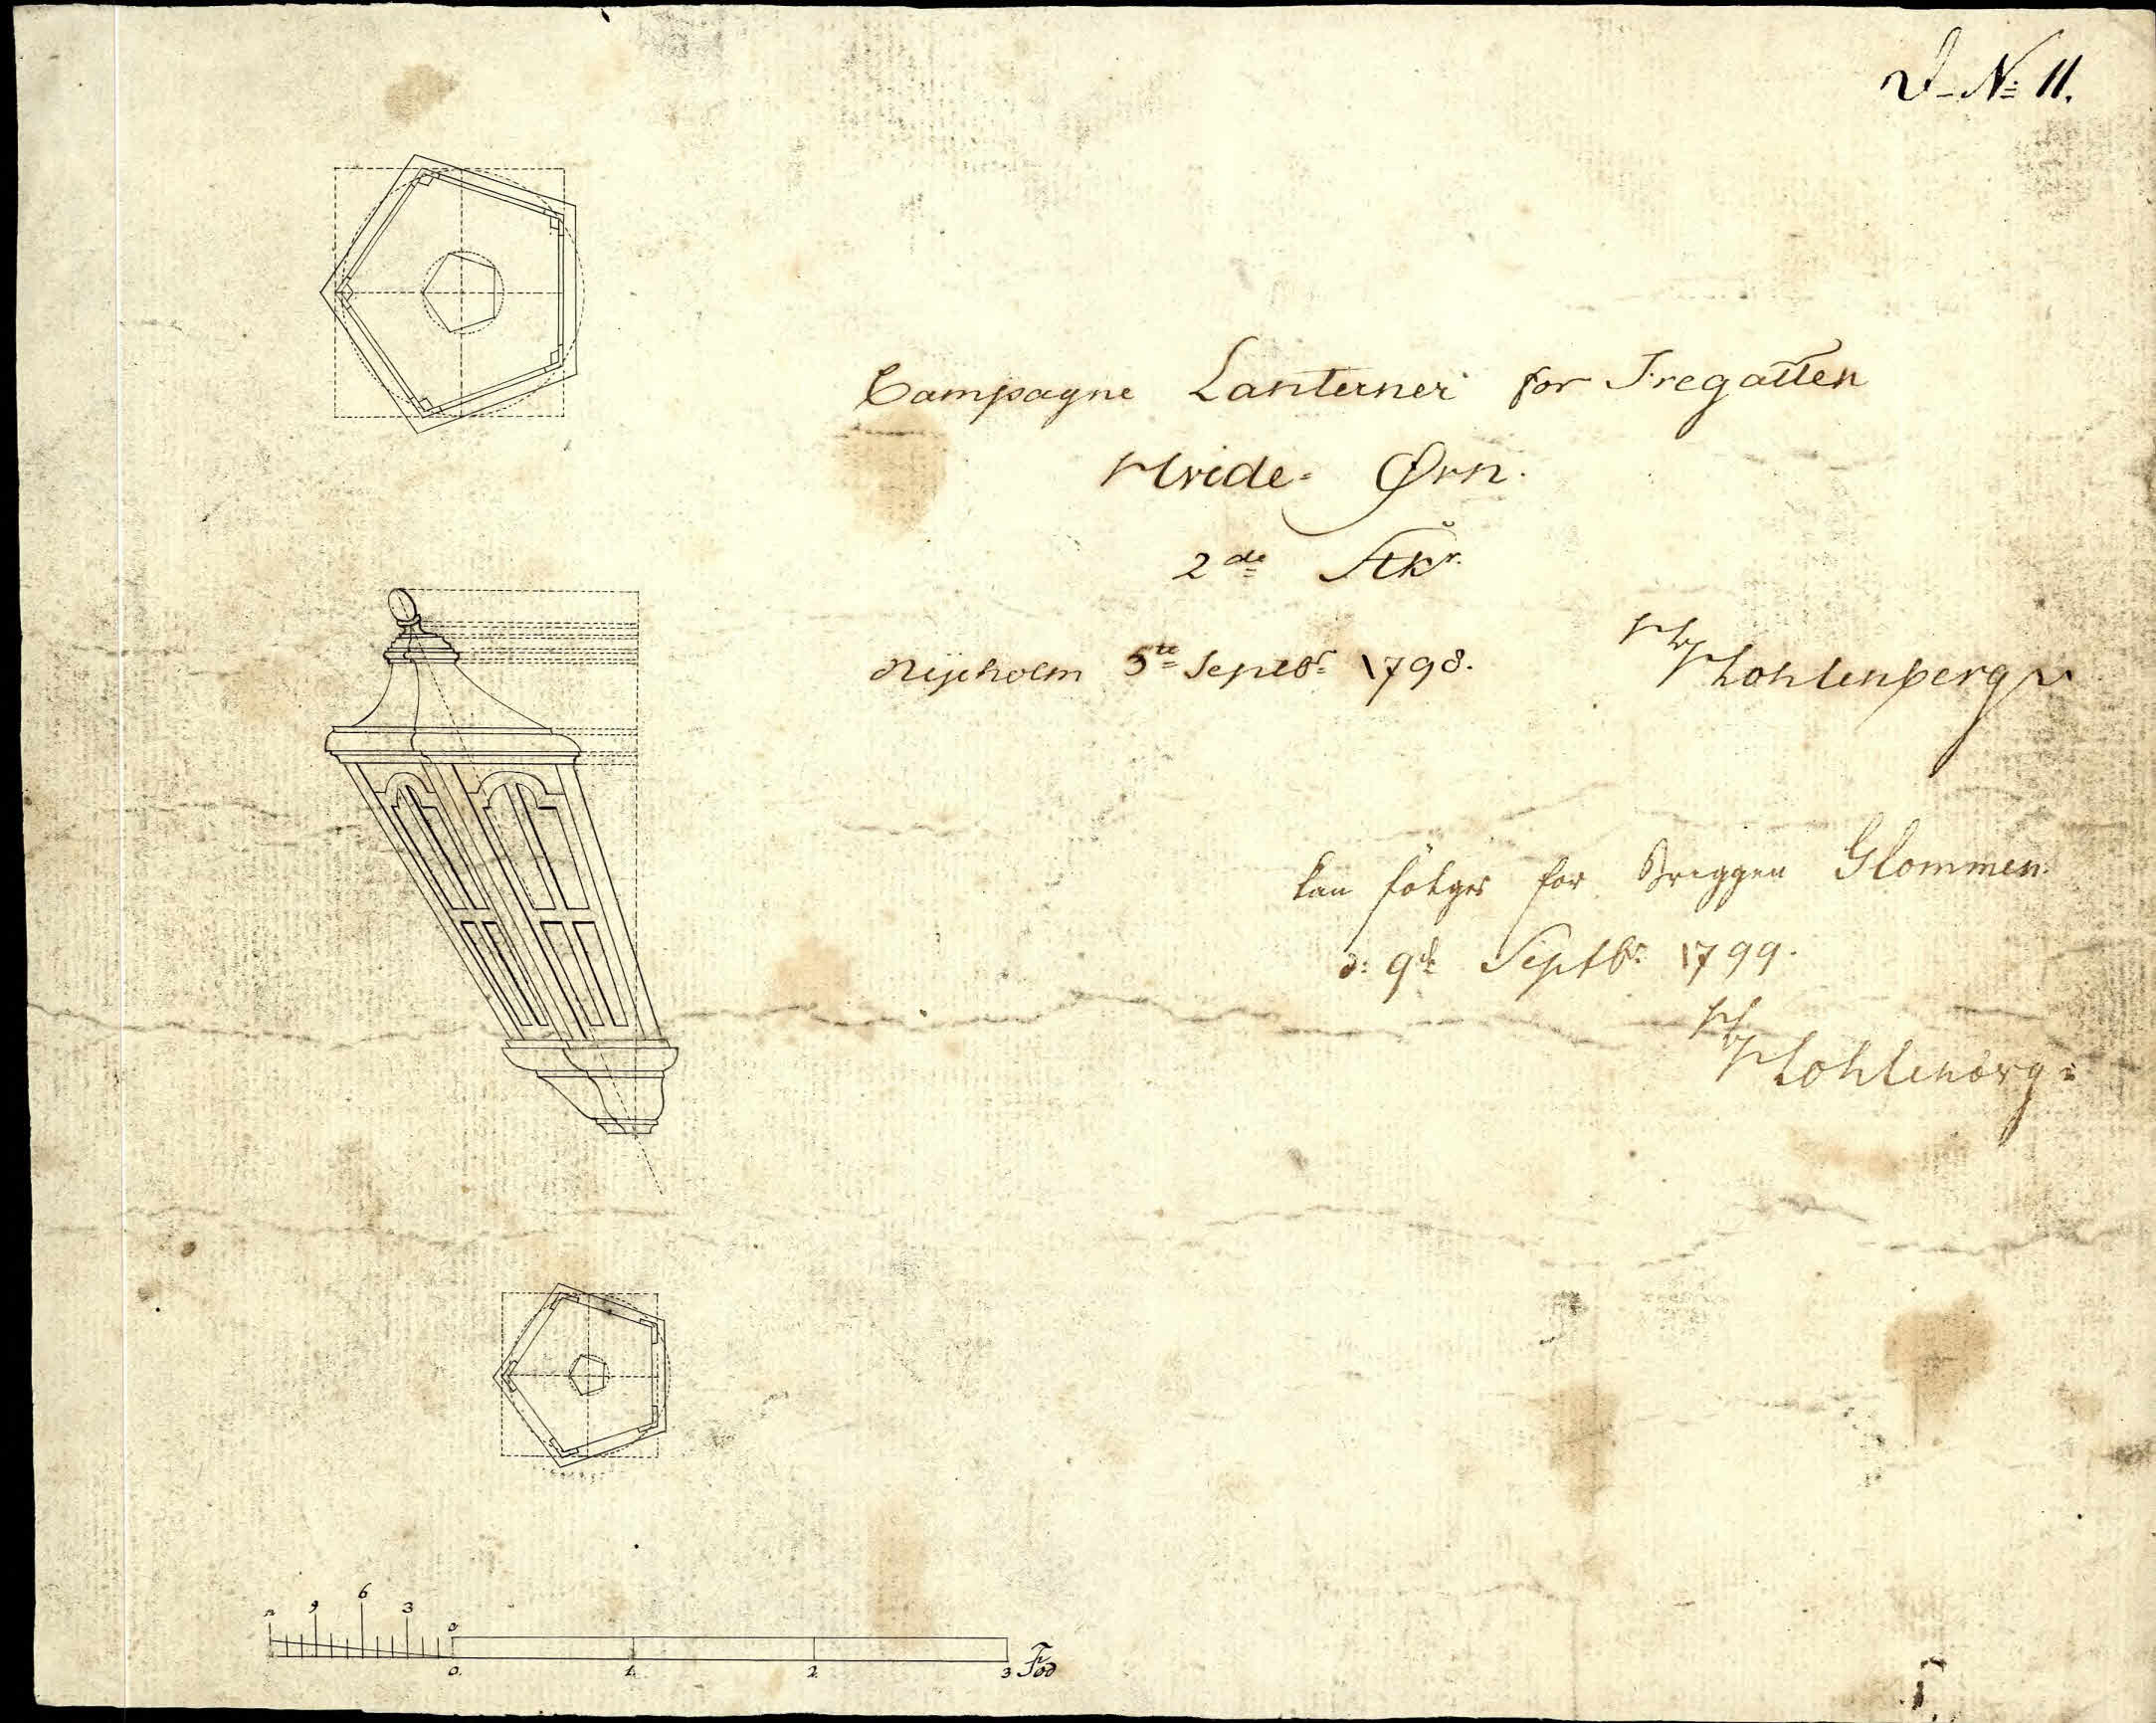 N: 11.
Campagne Lanterner for Fregatten
Hvide- Ørn.
2de Stkr.
Nyeholm 5te Septbr 1798.
Hohlenberg
kan følges for Briggen Glommen.
d: 9de Septbr: 1799.
Hohlenberg
9 6 3 0
0. 1. 2. 3 Fod